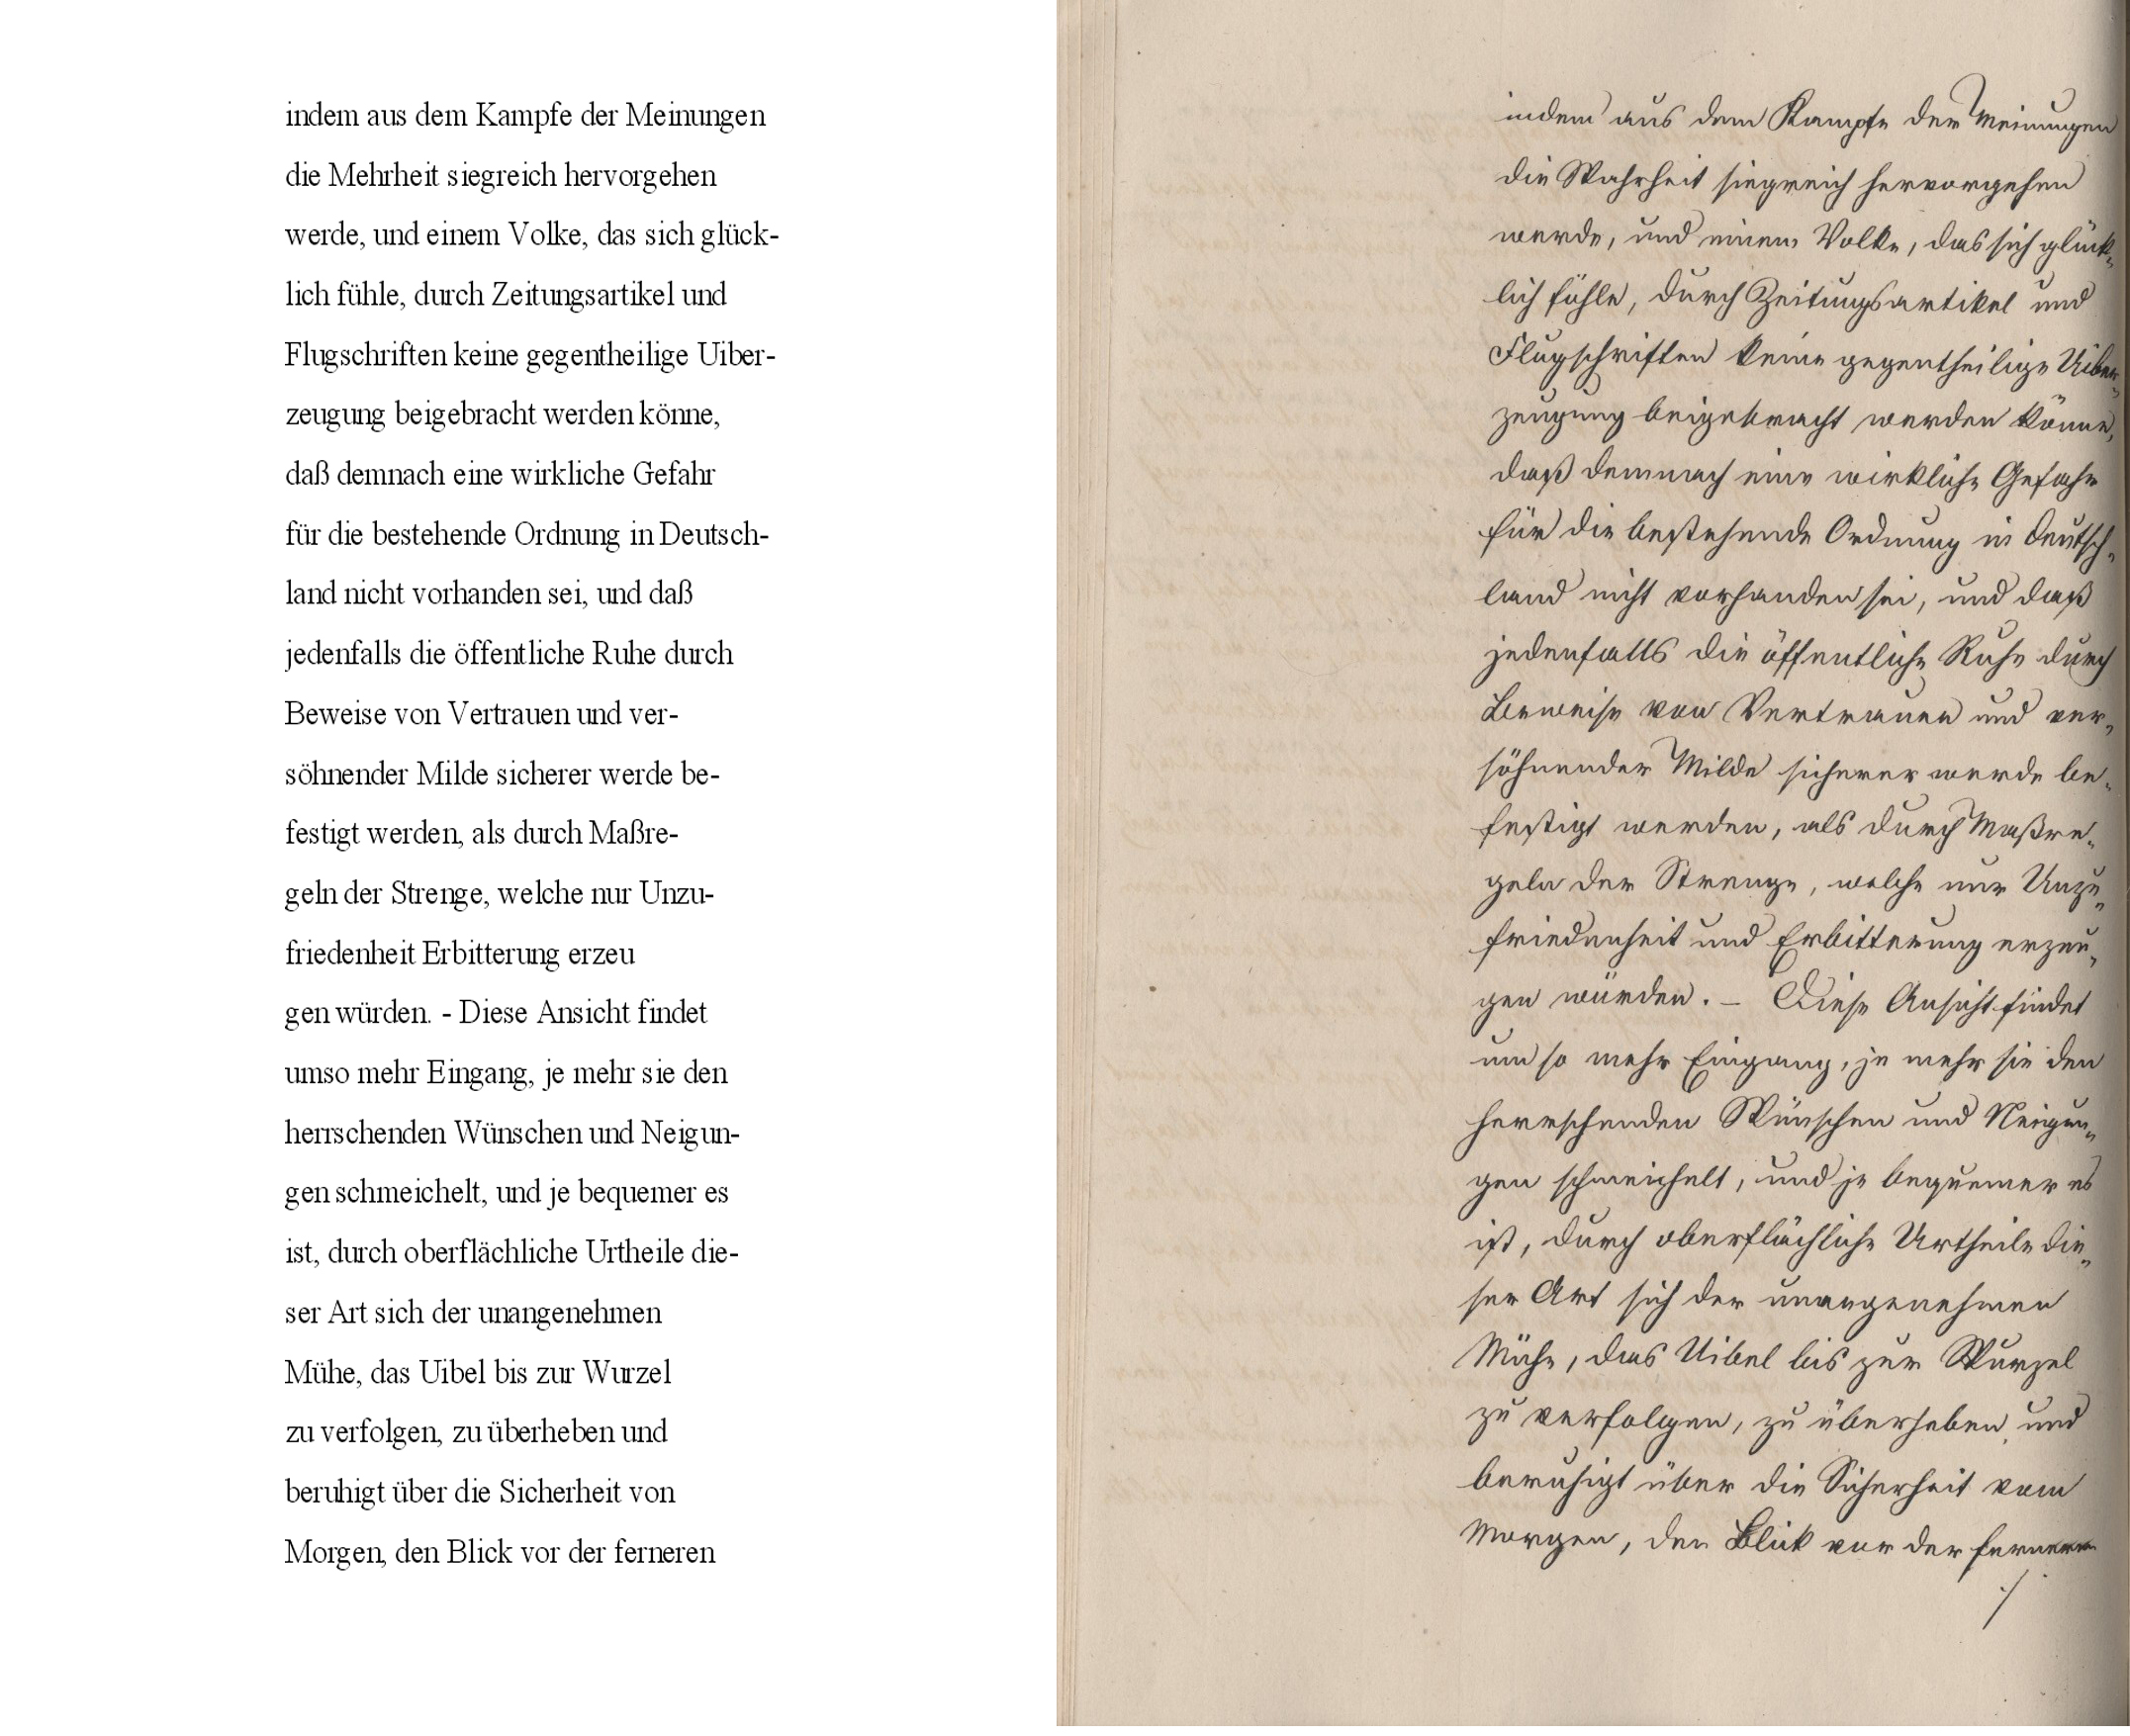 indem aus dem Kampfe der Meinungen
die Mehrheit siegreich hervorgehen
werde, und einem Volke, das sich glück-
lich fühle, durch Zeitungsartikel und
Flugschriften keine gegentheilige Uiber-
zeugung beigebracht werden könne,
daß demnach eine wirkliche Gefahr
für die bestehende Ordnung in Deutsch-
land nicht vorhanden sei, und daß
jedenfalls die öffentliche Ruhe durch
Beweise von Vertrauen und ver-
söhnender Milde sicherer werde be-
festigt werden, als durch Maßre-
geln der Strenge, welche nur Unzu-
friedenheit Erbitterung erzeu
gen würden. - Diese Ansicht findet
umso mehr Eingang, je mehr sie den
herrschenden Wünschen und Neigun-
gen schmeichelt, und je bequemer es
ist, durch oberflächliche Urtheile die-
ser Art sich der unangenehmen
Mühe, das Uibel bis zur Wurzel
zu verfolgen, zu überheben und
beruhigt über die Sicherheit von
Morgen, den Blick vor der ferneren
indem aus dem Kampfe der Meinungen
die Wahrheit siegreich hervorgehen
werde, und einem Volke, das sich glück-
lich fühle, durch Zeitungsartikel und
Flugschriften keine gegentheilige Uiber-
zeugung beigebracht werden könne,
daß demnach eine wirkliche Gefahr
für die bestehende Ordnung in Deutsch-
land nicht vorhanden sei, und daß
jedenfalls die öffentliche Ruhe durch
Beweise von Vertrauen und ver-
söhnender Milde sicherer werde be-
festigt werden, als durch Maßre-
geln der Strenge, welche nur Unzu-
friedenheit und Erbitterung erzeu-
gen würden. – Diese Ansicht findet
um so mehr Eingang, je mehr sie den
herrschenden Wünschen und Neigun-
gen schmeichelt, und je bequemer es
ist, durch oberflächliche Urtheile die-
ser Art sich der unangenehmen
Mühe, das Uibel bis zur Wurzel
zu verfolgen, zu überheben, und
beruhigt über die Sicherheit vom
Morgen, den Blick vor der ferneren
./